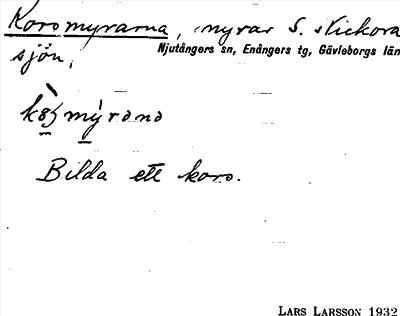 Korsmyrarna, myrar S. Stickora
sjön,
Njutångers sn, Enångers tg, Gävleborgs län
Bilda ett kors.
LARS LARSSON 1932